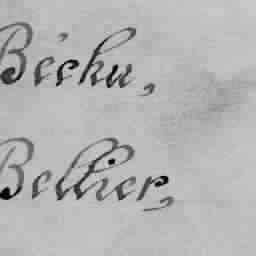 Bécku,
Bellier,